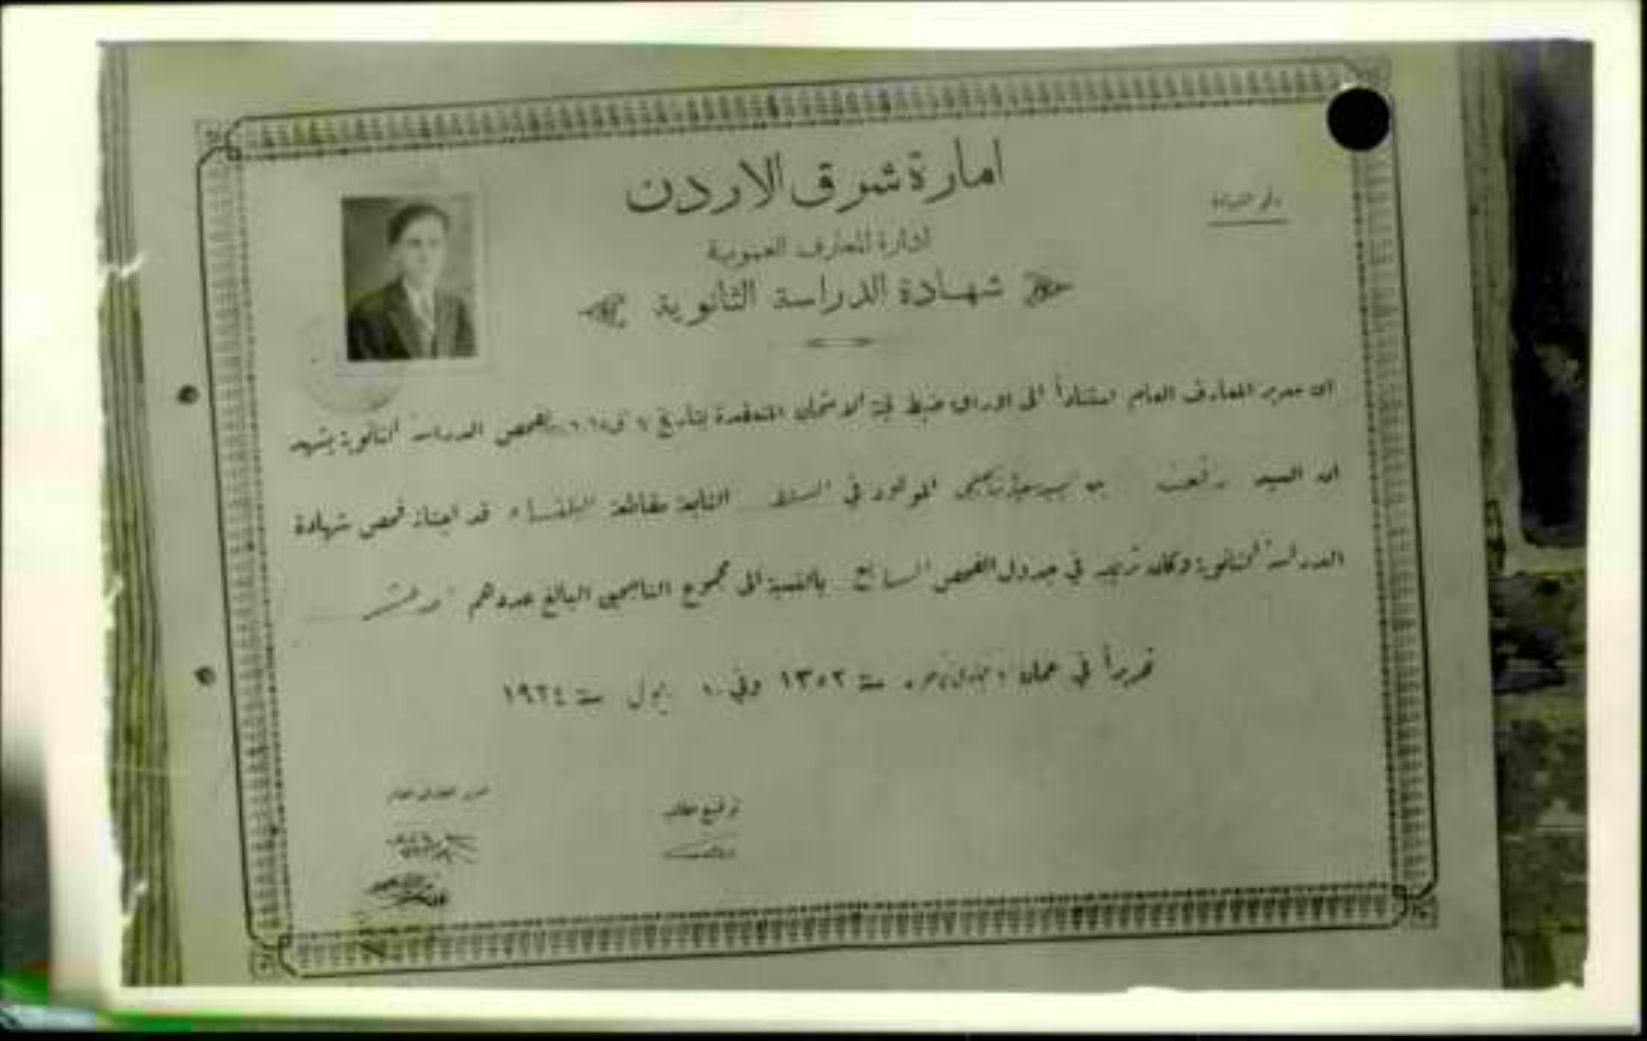 امارة شرق الاردن
رقم الشهادة
ادارة المعارف العمومية
شهادة الدراسة الثانوية
ان مدير المعارف العام استناداً الى اوراق ضبط لجنة الامتحان المنعقدة بتاريخ لفحص الدراسة الثانوية يشهد
ان السيد رفعت بن المولود في السلط التابعة مقاطعة البلقاء قد اجتاز فحص شهادة
الدراسة الثانوية وكان ترتيبه في جدول الفحص السابع بالنسبة الى مجموع الناجحين البالغ عددهم
تحريراً في عمان سنة ١٣٥٣ وفي ايلول سنة ١٩٣٤
مدير المعارف العام
توقيع